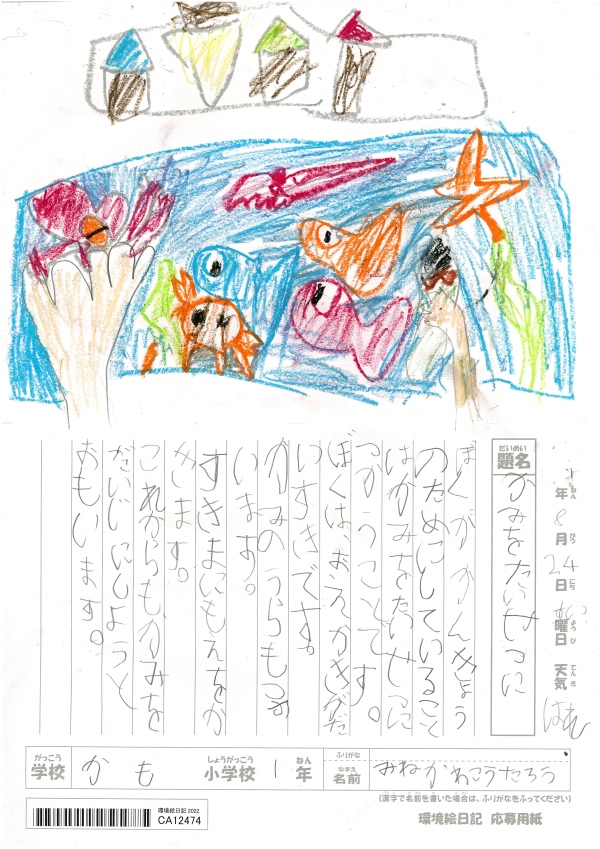 年8月24日すい曜日 天気はれ
ねん がつ にち ようび てんき
だいめい
題名 かみをたいせつに
ぼくがかんきょう
のためにしていること
はかみをたいせつに
つかうことです。
ぼくは、おえかきがだ
いすきです。
かみのうらもつか
います。
すきまにもえをか
きます。
これからもかみを
だいじにしようと
おもいます。
がっこう しょうがっこう ねん ふりがな なまえ
学校 かも 小学校 1年 名前 みねかわこうたろう
(漢字で名前を書いた場合は、ふりがなをふってください)
環境絵日記 2022
CA12474
環境絵日記 応募用紙